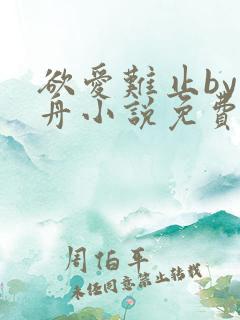 欲愛難止by
舟小說免費
周怕平
未经同意禁止转载